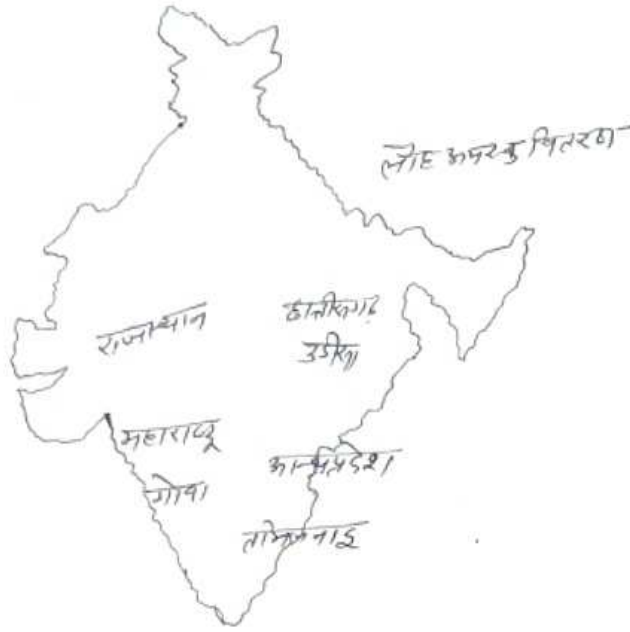 लौह अयस्क वितरण
राजस्थान
छत्तीसगढ़
उडीसा
महाराष्ट्र
आन्ध्रप्रदेश
गोवा
तमिलनाडू